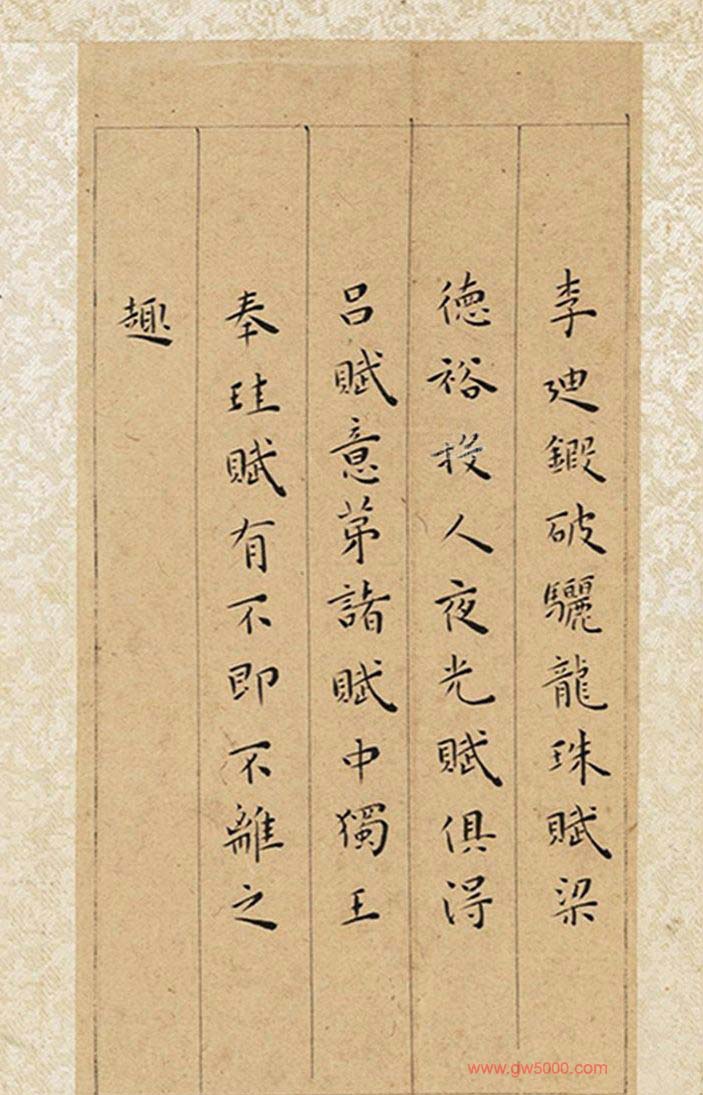 李廸鍛破驪龍珠賦梁
德裕投人夜光賦俱淂
呂賦意苐諸賦中獨王
奉珪賦有不即不離之
趣
www.gw5000.com